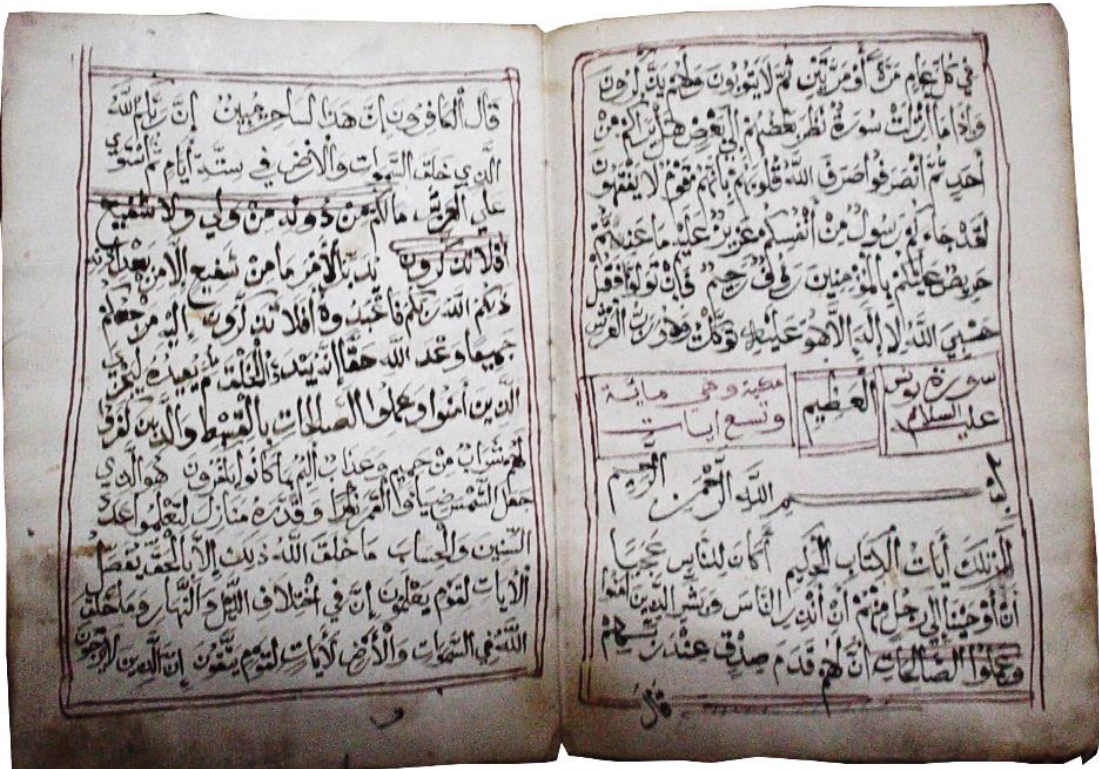 في كل عام مرة أو مرتين ثم لا يتوبون ولا هم يذكرون
وإذا ما أنزلت سورة نظر بعضهم إلى بعض هل يراكم من
أحد ثم انصرفوا صرف الله قلوبهم بأنهم قوم لا يفقهون
لقد جاءكم رسول من أنفسكم عزيز عليه ما عنتم
حريص عليكم بالمؤمنين رؤف رحيم فإن تولوا فقل
حسبي الله لا إله إلا هو عليه توكلت وهو رب العرش
العظيم
سورة يونس
عليه السلام
مكية وهي مائية
وتسع ايات
بسم الله الرحمن الرحيم
الر تلك أيات الكتاب الحكيم أكان للناس عجبا
أن أوحينا إلى رجل منهم أن أنذر الناس وبشر الذين امنوا
وعملوا الصالحات أن لهم قدم صدق عند ربهم
قال
قال الكافرون إن هذا لساحر مبين إن ربكم الله
الذي خلق السموات والأرض في ستة أيام ثم استوى
على العرش ما لكم من دونه من ولي ولا شفيع
أفلا تذكرون يدبر الأمر ما من شفيع إلا من بعد إذنه
ذلكم الله ربكم فاعبدوه أفلا تذكرون إليه مرجعكم
جميعا وعد الله حقا إنه يبدؤ الخلق ثم يعيده ليجزي
الذين أمنوا وعملوا الصالحات بالقسط والذين كفروا
لهم شراب من حميم وعذاب أليم بما كانوا يكفرون هو الذي
جعل الشمس ضياء والقمر نورا وقدره منازل لتعلموا عدد
السنين والحساب ما خلق الله ذلك إلا بالحق يفصل
الأيات لقوم يعلمون إن في اختلاف الليل والنهار وما خلق
الله في السموات والأرض لأيات لقوم يتقون إن الذين لا يرجون